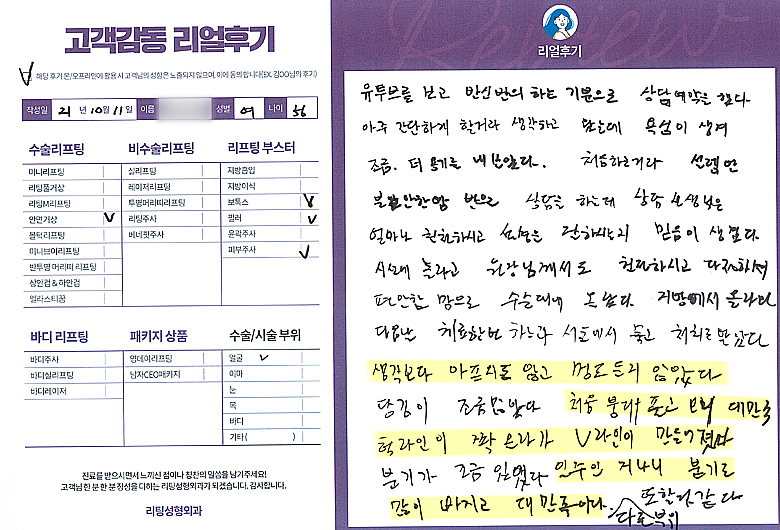 고객감동 리얼후기
해당 후기 온/오프라인에 활용 시 고객님의 성함은 노출되지 않으며, 이에 동의 합니다(EX. 김OO님의 후기)
작성일 21 년 10월 11일 이름 성별 여 나이 56
수술리프팅
미니리프팅
리팅풀거상
리팅M리프팅
안면거상
볼턱리프팅
미니브이리프팅
반투명 머리띠 리프팅
상안검 & 하안검
엘라스티꿈
비수술리프팅
실리프팅
레이저리프팅
투명머리띠리프팅
리팅주사
베네핏주사
리프팅 부스터
지방흡입
지방이식
보톡스
필러
윤곽주사
피부주사
바디 리프팅
바디주사
바디실리프팅
바디레이저
패키지 상품
영데이리프팅
남자CEO패키지
수술/시술 부위
얼굴
이마
눈
목
바디
기타( )
진료를 받으시면서 느끼신 점이나 칭찬의 말씀을 남겨주세요!
고객님 한 분 한 분 정성을 다하는 리팅성형외과가 되겠습니다. 감사합니다.
리팅성형외과
Review
리얼후기
유투브를 보고 반신반의 하는 기분으로 상담예약을 했다
아주 간단하게 할거라 생각하고 왔는데 욕심이 생겨
조금. 더 용기를 내 보았다. 처음하는거라 설렘반
불안한맘 반으로 상담을 하는데 상담 선생님은
얼마나 친절하시고 설명을 잘하시는지 믿음이 생겼다
원장님께서도 친절하시고 다정하셔
편안한 맘으로 수술대에 눕다. 지방에서 올라와
다음날 치료한번 하느라 서울에서 묵고 처치를 받았다
생각보다 아프지도 않고 멍도 들지 않았다
당김이 조금 있었다 처음 붕대 풀고 보니 대만족
턱라인이 쫙 올라가 V라인이 만들어졌다
붓기가 조금 있었다 일주일 지나니 붓기도
많이 빠지고 대만족이다. 또할거 같다
다른부위